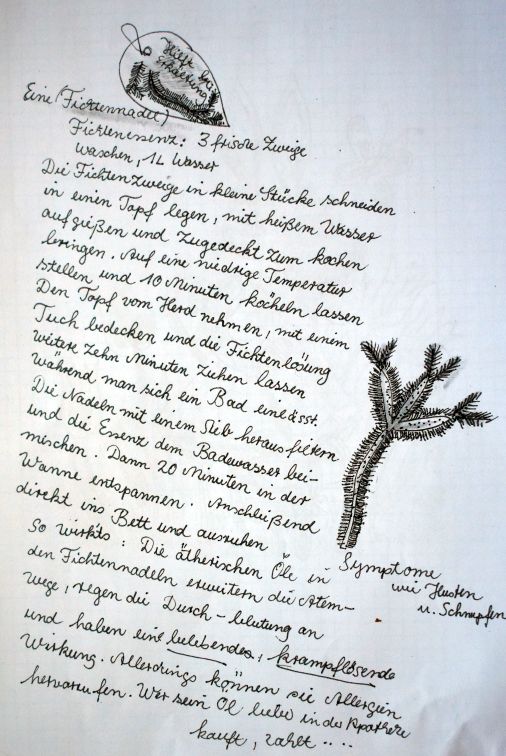 Hilft bei
Erkältung
Eine (Fichtennadel)
Fichtenessenz: 3 frische Zweige
Waschen, 1L Wasser
Die Fichtenzweige in kleine Stücke schneiden
in einen Topf legen, mit heißem Wasser
aufgießen und zugedeckt zum kochen
bringen. Auf eine niedrige Temperatur
stellen und 10 Minuten köcheln lassen
Den Topf vom Herd nehmen, mit einem
Tuch bedecken und die Fichtenlösung
weitere zehn Minuten ziehen lassen
Während man sich ein Bad einlässt.
Die Nadeln mit einem Sieb herausfiltern
und die Essenz dem Badewasser bei-
mischen. Dann 20 Minuten in der
Wanne entspannen. Anschließend
direkt ins Bett und ausruhen
So wirkts: Die ätherischen Öle in
den Fichtennadeln erweitern die Atem-
wege, regen die Durch-blutung an
und haben eine belebende, krampflösende
Wirkung. Allerdings können sie Allergien
hervorrufen. Wer sein Öl lieber in der Apotheke
kauft, zahlt ....
Symptome
wie Husten
u. Schnupfen